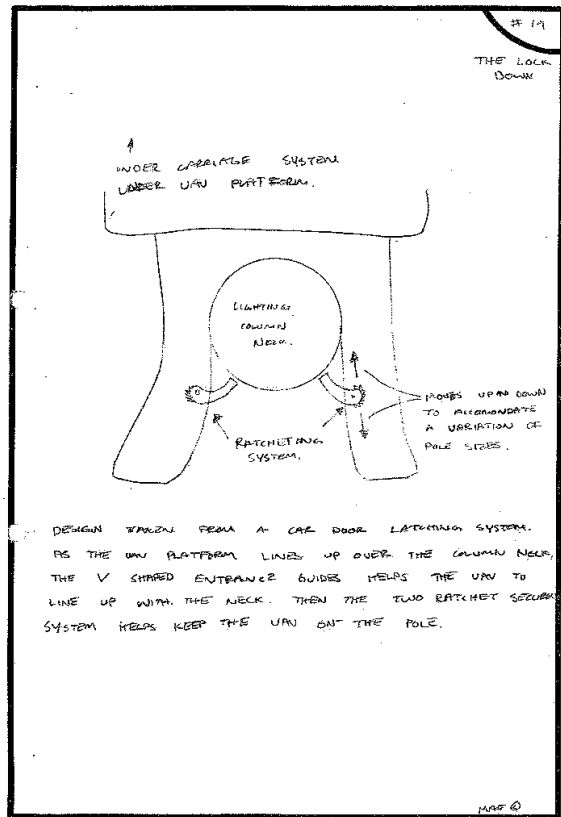 # 19
THE LOCK
DOWN
UNDER CARRIAGE SYSTEM
UNDER UAV PLATFORM.
LIGHTING
COLUMN
NECK.
MOVES UP AND DOWN
TO ACCOMONDATE
A VARIATION OF
POLE SIZES.
RATCHETING
SYSTEM.
DESIGN TAKEN FROM A CAR DOOR LATCHING SYSTEM.
AS THE UAV PLATFORM LINES UP OVER THE COLUMN NECK,
THE V SHAPED ENTRANCE GUIDES HELPS THE UAV TO
LINE UP WITH THE NECK. THEN THE TWO RATCHET SECURE
SYSTEM HELPS KEEP THE UAV ON THE POLE.